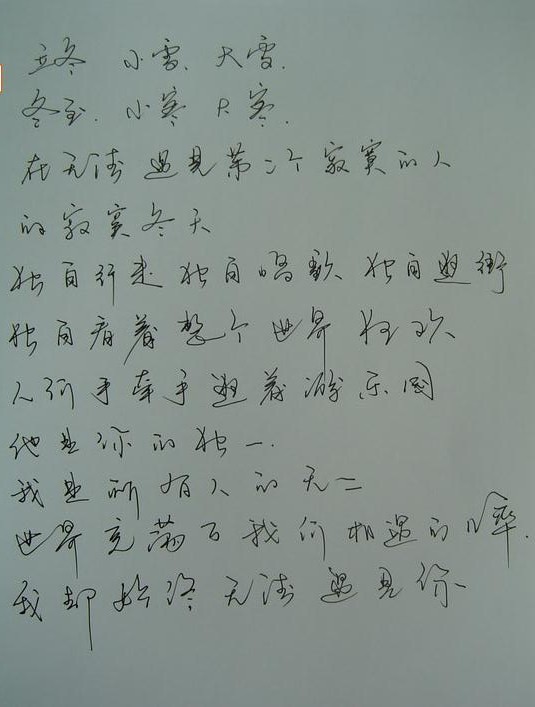 立冬 小雪. 大雪.
冬至. 小寒 大寒.
在无法遇见第二个寂寞的人
的寂寞冬天
独自行走 独自唱歌 独自逛街
独自看着整个世界狂欢
人们手牵手逛着游乐园
他是你的独一.
我是所有人的无二
世界充满了我们相遇的
我却始终无法遇见你